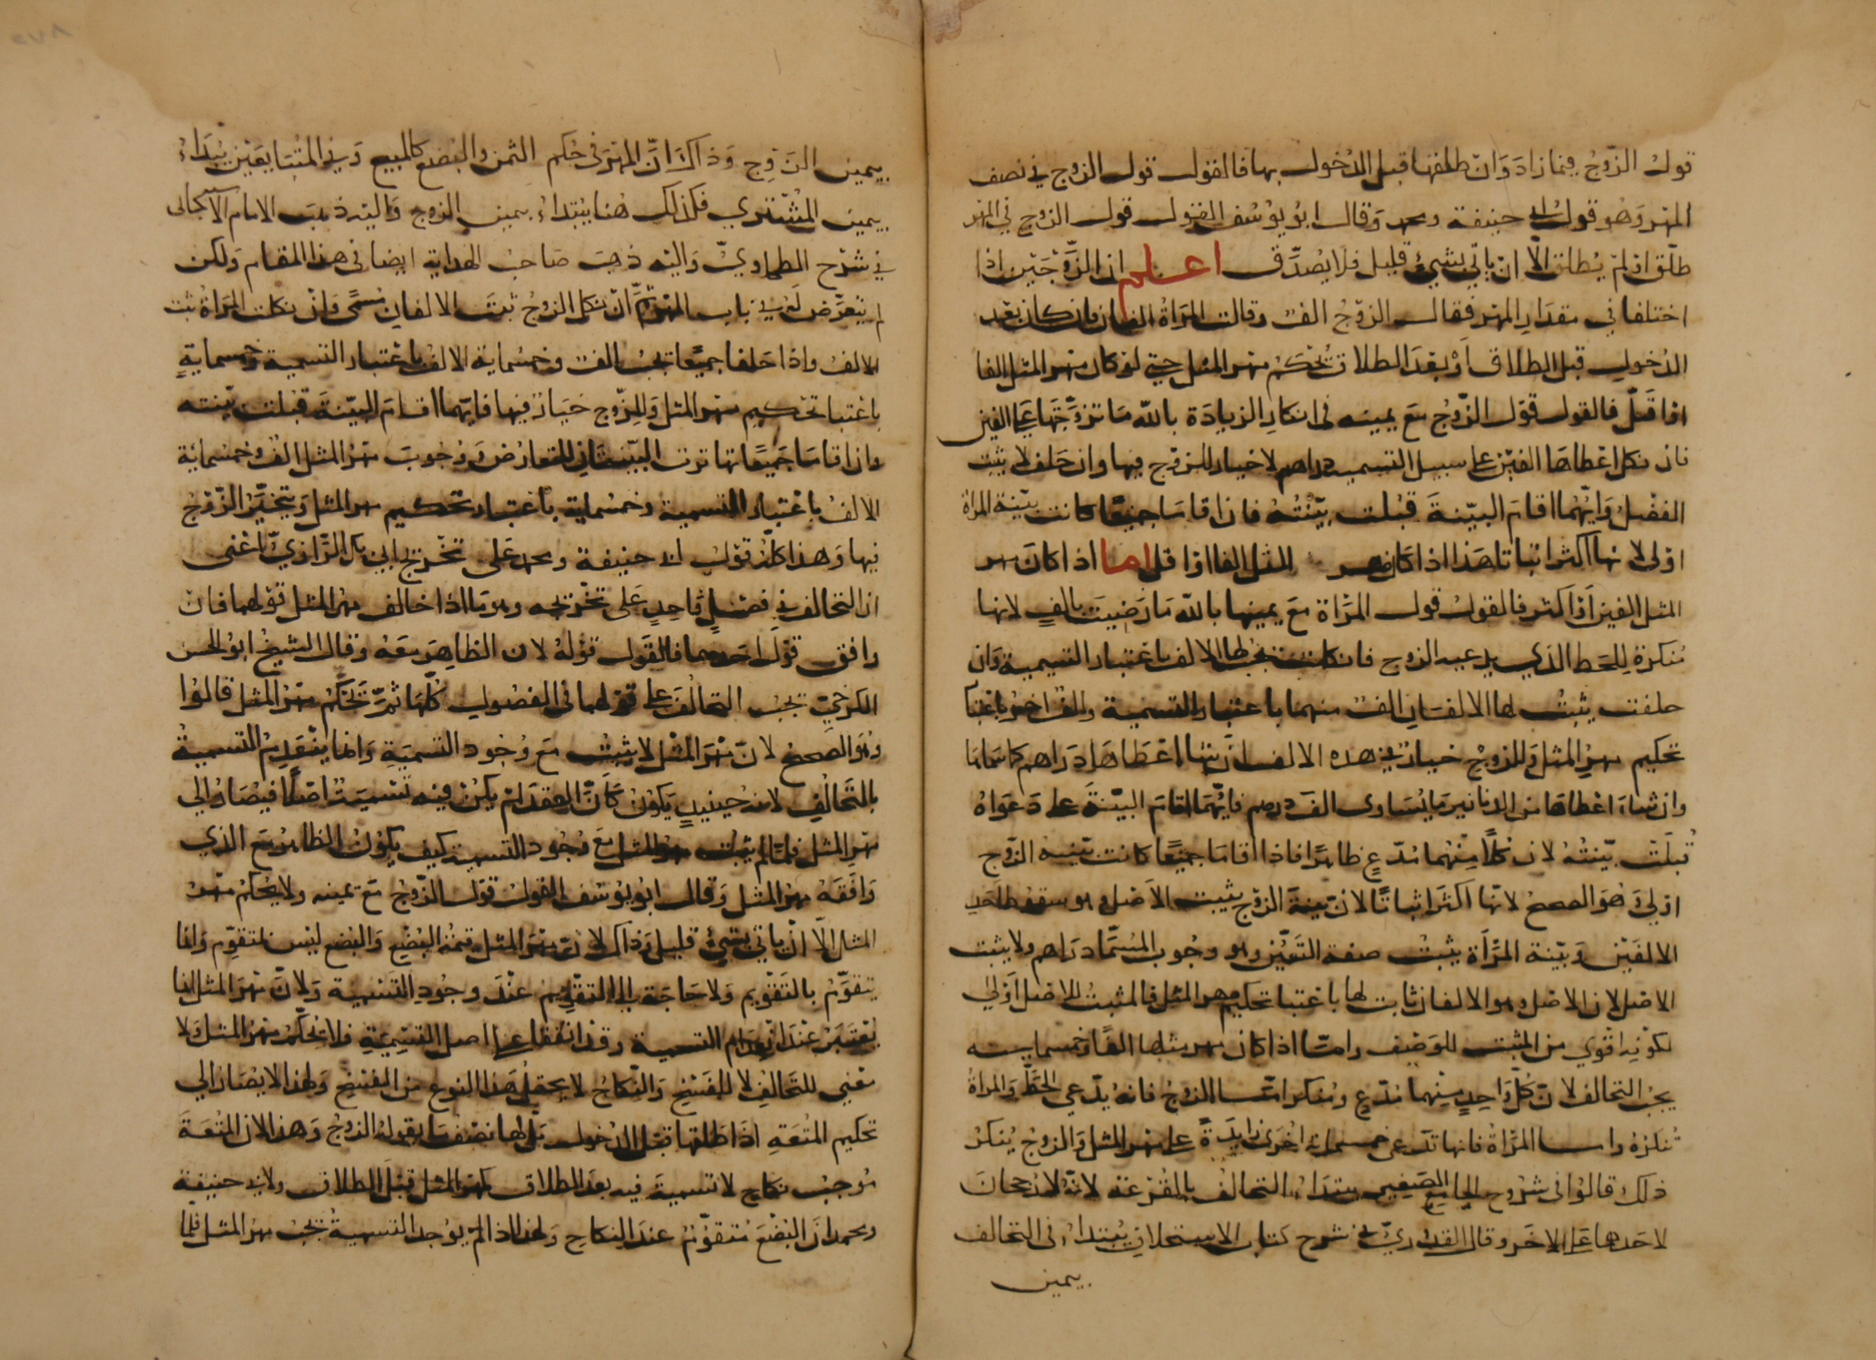 قول الزوج فيما زاد وان طلقها قبل الدخول بها فالقول قول الزوج في نصف
المهر وهو قول ابي حنيفة ومحمد وقال ابو يوسف القول قول الزوج في المهر
طلق او لم يطلق الا ان ياتي بشيء قليل فلا يصدق اعلم ان الزوجين اذا
اختلفا في مقدار المهر فقال الزوج الف وقالت المراة الفان فان كان بعد
الدخول قبل الطلاق او بعد الطلاق تحكم مهر المثل حتى لو كان مهر المثل الفا
او اقل فالقول قول الزوج مع يمينه في انكار الزيادة بالله ما تزوجها على الفين
فان نكل اعطاها الفين على سبيل التسمية دراهم لا خيار للزوج فيها وان حلف لا يثبت
الفضل وايهما اقام البينة قبلت بينته فان اقاما جميعا كانت بينة المراة
اولى لانها اكثر اثباتا هذا اذا كان مهر المثل الفا او اقل اما اذا كان مهر
المثل الفين او اكثر فالقول قول المراة مع يمينها بالله ما رضيت بالف لانها
منكرة للحط الذي يدعيه الزوج فان نكلت يجب لها الالف باعتبار التسمية وان
حلفت يثبت لها الالفان الف منهما باعتبار التسمية والف اخر باعتبار
تحكيم مهر المثل وللزوج خيار في هذه الالف ان شاء اعطاها دراهم كما سماها
وان شاء اعطاها من الدنانير ما يساوى الف درهم فايهما اقام البينة على دعواه
قبلت بينته لان كلا منهما مدع ظاهرا فاذا اقاما جميعا كانت بينة الزوج
اولى وهو الصحيح لانها اكثر اثباتا لان بينة الزوج يثبت الاصل وهو سقوط احد
الالفين وبينة المراة يثبت صفة التعين وهو وجوب المسمى دراهم ولا يثبت
الاصل لان الاصل وهو الالفان ثابت لها باعتبار تحكيم مهر المثل فالمثبت للاصل اولى
لكونه اقوى من المثبت للوصف واما اذا كان مهر مثلها الفا وخمسماية
يجب التحالف لان كل واحد منهما مدع ومنكر اما الزوج فانه يدعي الحط والمراة
تنكره واما المراة فانها تدعى خمسماية اخرى زايدة على مهر المثل والزوج ينكر
ذلك قالوا في شروح الجامع الصغير يبتداء التحالف بالقرعة لانه لا رجحان
لاحدهما على الاخر وقال القدوري في شرح كتاب الاستحلاف يبتداء في التحالف
يمين
بيمين الزوج وذاك ان المهر في حكم الثمن والبضع كالمبيع وفي المتبايعين يبداء
بيمين المشتري فكذلك هنا يبتداء بيمين الزوج واليه ذهب الامام الاسبيجابى
في شرح الطحاوي واليه ذهب صاحب الهداية ايضا في هذا المقام ولكن
لم يتعرض له في باب المهر ثم ان نكل الزوج ثبت الالفان مسمى وان نكلت المراة ثبت
الالف واذا حلفا جميعا يجب الف وخمسماية الالف باعتبار التسمية وخمسماية
باعتبار تحكيم مهر المثل وللزوج خيار فيها فايهما اقام البينة قبلت بينته
وان اقاما جميعا تهاترت البينتان للتعارض ووجوب مهر المثل الف وخمسمائة
الالف باعتبار التسمية وخمسماية باعتبار تحكيم مهر المثل ويتخير الزوج
فيها وهذا كله قول ابي حنيفة ومحمد على تخريج ابي بكر الرازي اعنى
ان التحالف في فصل واحد على تخريجه وهو ما اذا خالف مهر المثل قولهما فان
وافق قول احدهما فالقول قوله لان الظاهر معه وقال الشيخ ابو الحسن
الكرخي يجب التحالف على قولهما فى الفصول كلها ثم تحكم مهر المثل قالوا
وهو الصحيح لان مهر المثل لا يثبت مع وجود التسمية وانما ينعدم التسمية
بالتحالف لانه حينيذ يكون كان العقد لم يكن فيه تسمية اصلا فيصار الى
مهر المثل فلما لم يثبت مهر المثل مع وجود التسمية كيف يكون الظاهر مع الذي
وافقه مهر المثل وقال ابو يوسف القول قول الزوج مع يمينه ولا يحكم مهر
المثل الا ان ياتي بشيء قليل وذاك لان مهر المثل قيمة البضع والبضع ليس بمتقوم وانما
يتقوم بالتقويم ولا حاجة الى التقويم عند وجود التسمية ولان مهر المثل انما
يعتبر عند انعدام التسمية وقد اتفقا على اصل التسمية فلا نحكم مهر المثل ولا
معنى للتحالف لانه للفسخ والنكاح لا يحتمل هذا النوع من الفسخ ولهذا لا يصار الي
تحكيم المتعة اذا طلقها قبل الدخول بل لها نصف ما يقوله الزوج وهذا لان المتعة
موجب نكاح لا تسمية فيه بعد الطلاق كمهر المثل قبل الطلاق ولابي حنيفة
ومحمد ان البضع متقوم عند النكاح ولهذا اذا لم يوجد التسمية يجب مهر المثل فلما